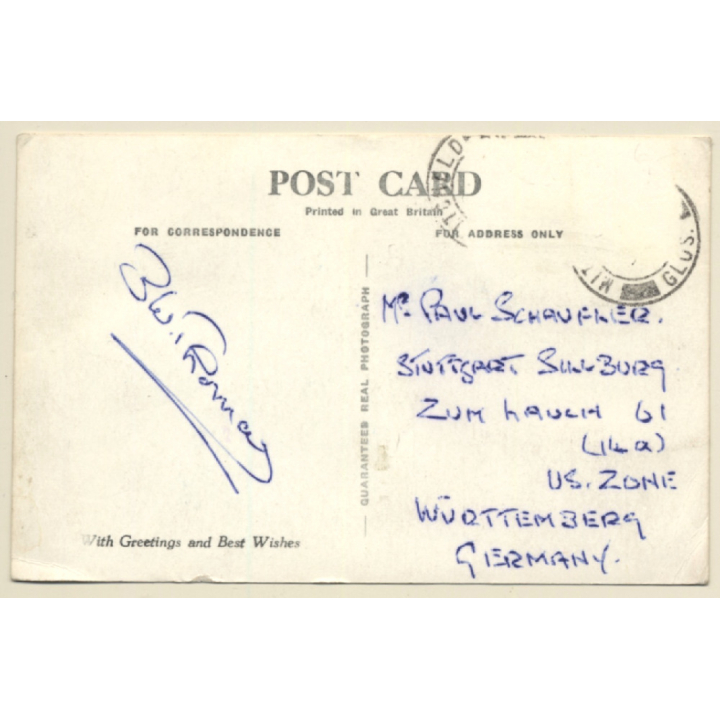 POST CARD
Printed in Great Britain
FOR CORRESPONDENCE
FOR ADDRESS ONLY
GUARANTEED REAL PHOTOGRAPH
Mr PAUL SCHAUFLER.
STUTTGART SILLBURG
ZUM LAUCH 61
(14 a)
US. ZONE
WÜRTTEMBERG
GERMANY.
With Greetings and Best Wishes
GLOS.